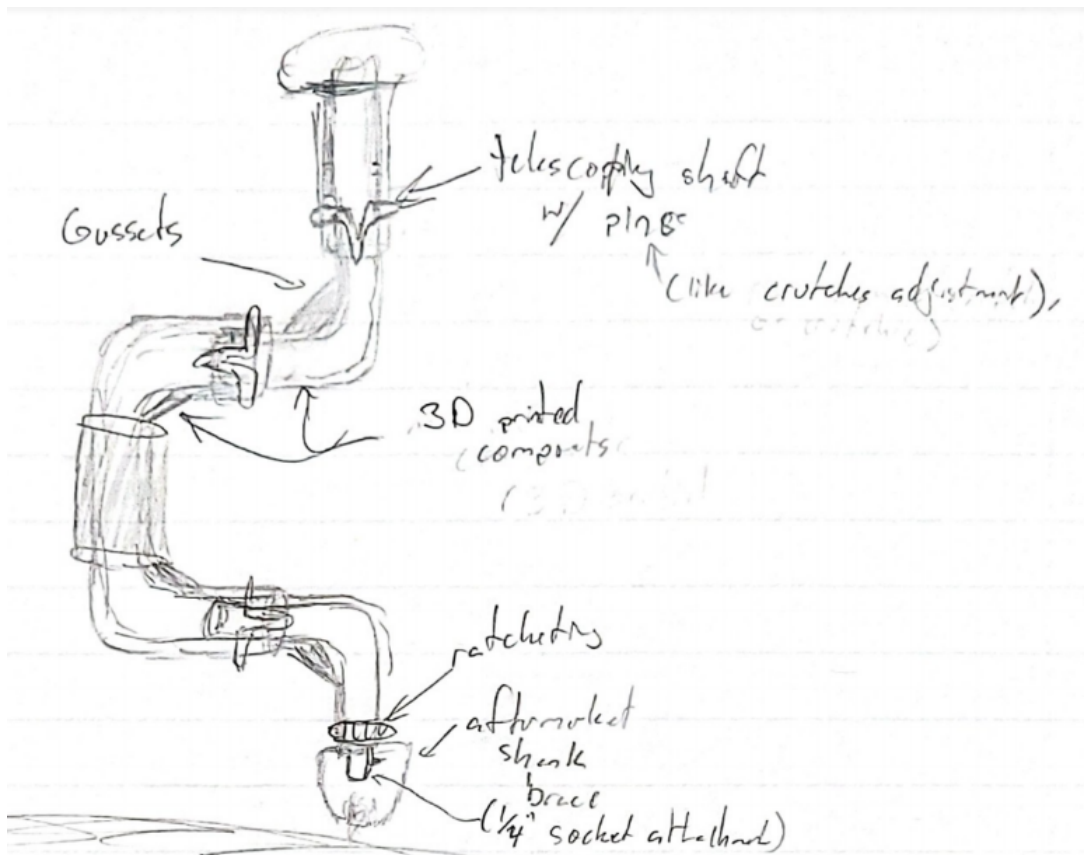 telescoping shaft
w/ pins
(like crutches adjustment),
Gussets
3D printed
components
ratcheting
aftermarket
shank
brace
(1/4" socket attachment)